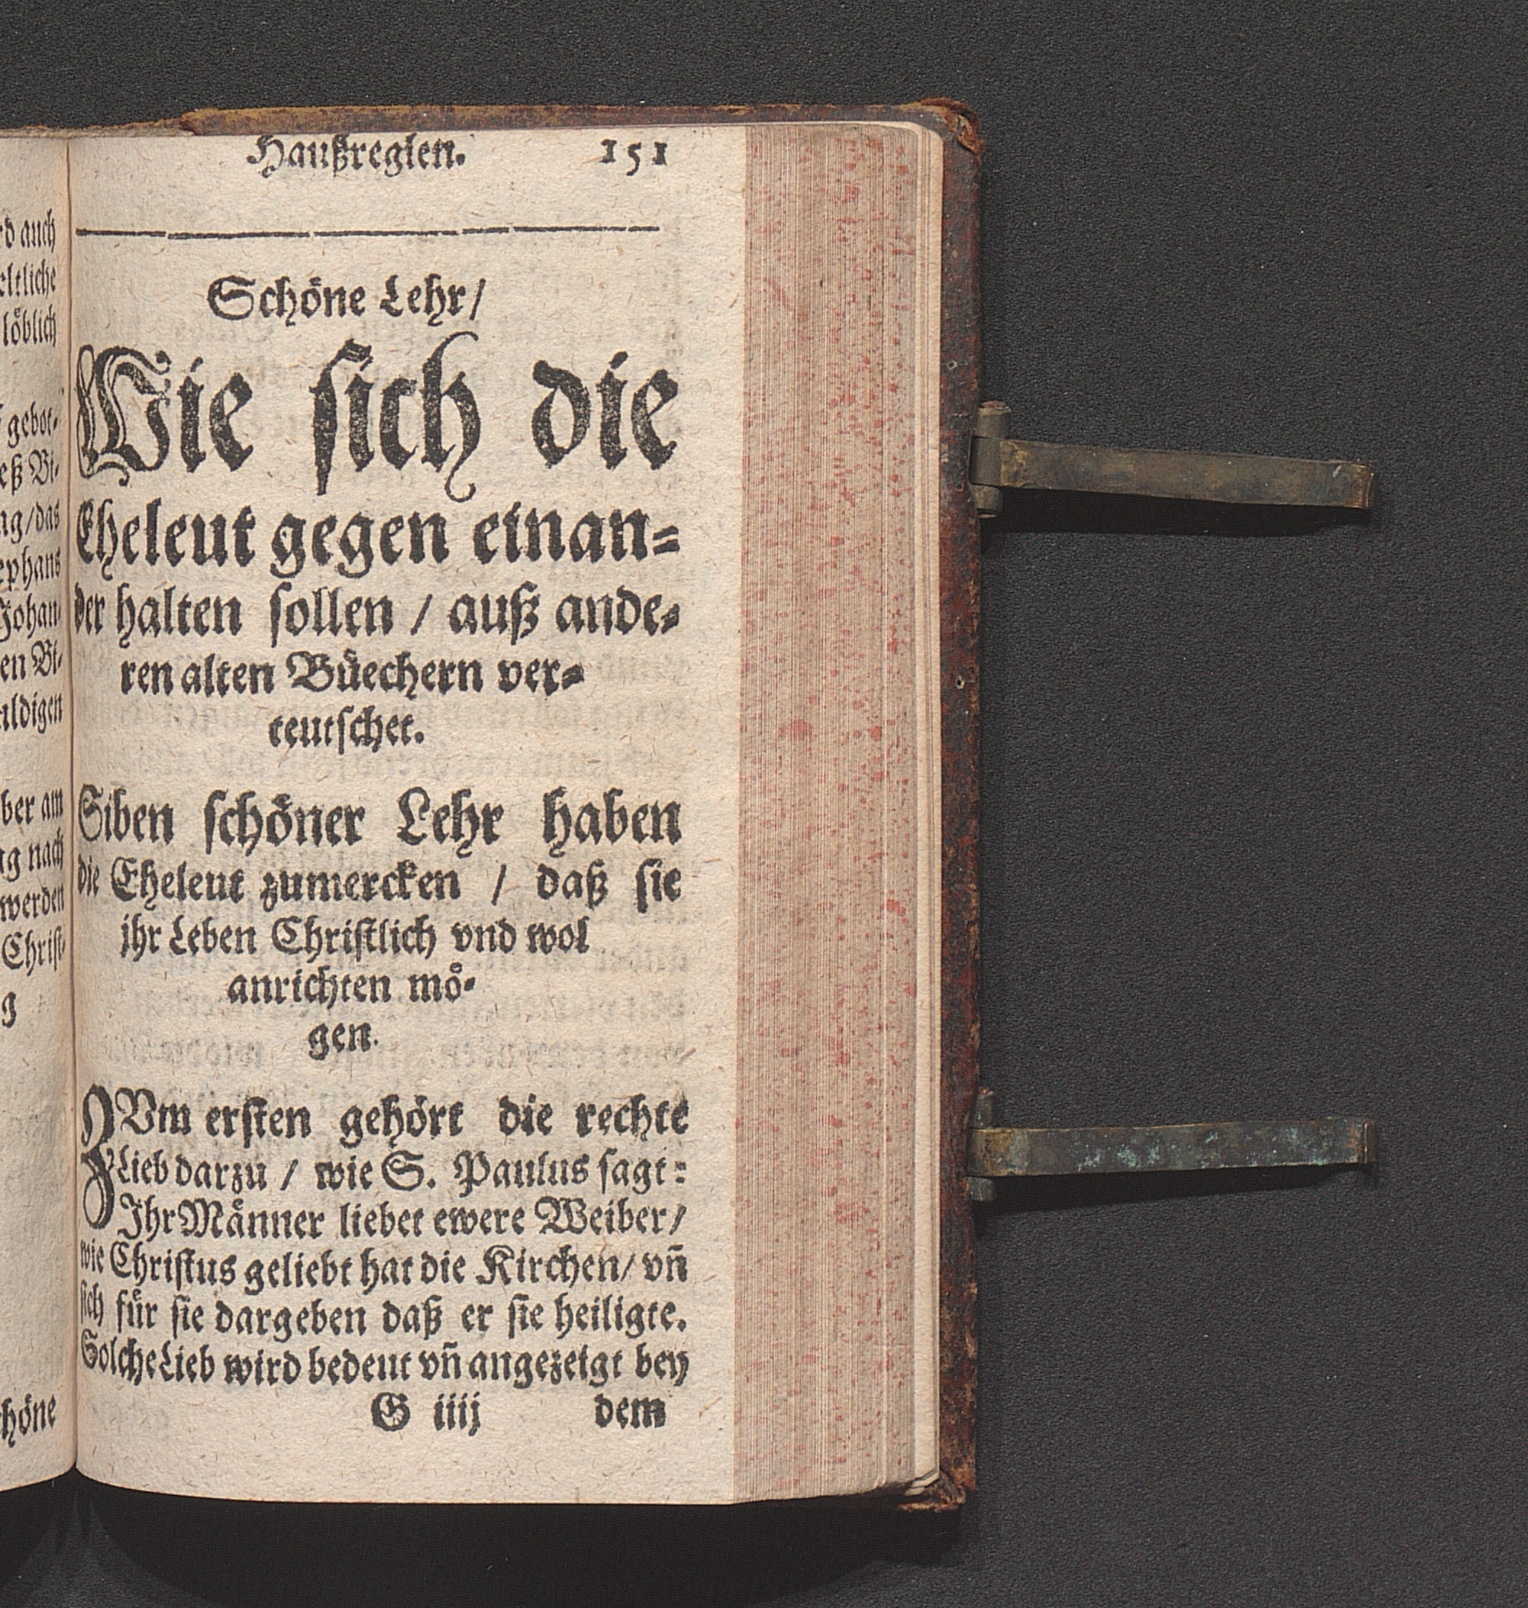 Haußreglen. 151
Schöne Lehr/
Wie sich die
Eheleut gegen einan-
der halten sollen / auß ande-
ren alten Büechern ver-
teutschet.
Siben schöner Lehr haben
die Eheleut zumercken / daß sie
jhr Leben Christlich vnd wol
anrichten mö-
gen.
ZVm ersten gehört die rechte
Lieb darzu / wie S. Paulus sagt:
Ihr Männer liebet ewere Weiber/
wie Christus geliebt hat die Kirchen/ vñ
sich für sie dargeben daß er sie heiligte.
Solche Lieb wird bedeut vñ angezeigt bey
G iiij dem
rd auch
eltliche
löblich
gebot-
eß Bi-
ng/das
ephans
Johan-
en Bi-
uldigen
ber am
ng nach
werden
Christ-
g
chöne